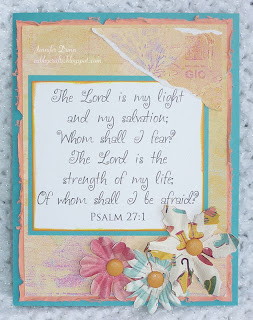 Jennifer Dove
GIO
The Lord is my light
and my salvation;
Whom shall I fear?
The Lord is the
strength of my life;
Of whom shall I be afraid?
PSALM 27:1